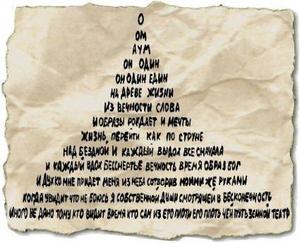 О
ОМ
АУМ
ОН ОДИН
ОН ОДИН ЕДИН
НА ДРЕВЕ ЖИЗНИ
ИЗ ВЕЧНОСТИ СЛОВА
И ОБРАЗЫ РОЖДАЕТ И МЕЧТЫ
ЖИЗНЬ, ПЕРЕЙТИ КАК ПО СТРУНЕ
НАД БЕЗДНОЙ И КАЖДЫЙ ВЫДОХ ВСЕ СНАЧАЛА
И КАЖДЫЙ ВДОХ БЕССМЕРТЬЕ ВЕЧНОСТЬ ВРЕМЯ ОБРАЗ БОГ
И ДУХ КО МНЕ ПРИДЕТ МЕНЯ ИЗ НЕБА СОТВОРИВ МОИМИ ЖЕ РУКАМИ
КОГДА УВИДИТ ЧТО НЕ БОЮСЬ Я СОБСТВЕННОЙ ДУШИ СМОТРЯЩЕЙ В БЕСКОНЕЧНОСТЬ
ИНОГО НЕ ДАНО ТОМУ КТО ВИДИТ ВРЕМЯ КТО САМ ИЗ ЕГО ПЛОТИ ЕГО ПЛОТЬ ЧЕЙ ПУТЬ ВЕННОЙ ТЕАТР